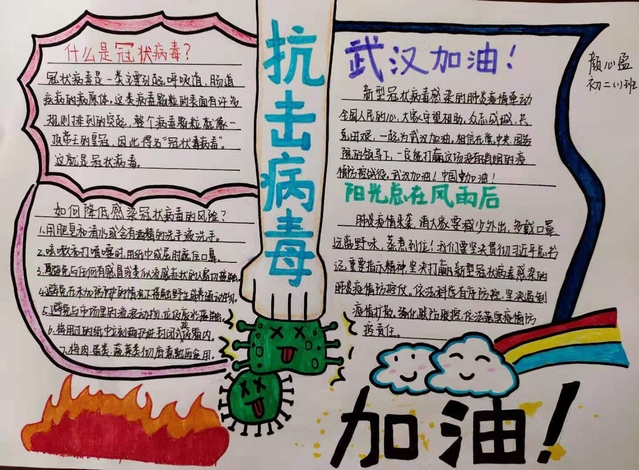 什么是冠状病毒？
冠状病毒是一类主要引起呼吸道、肠道
疾病的病原体，这类病毒颗粒的表面有许多
规则排列的突起，整个病毒颗粒就像一
顶帝王的皇冠，因此得名“冠状病毒”。
这就是冠状病毒。
如何降低感染冠状病毒的风险？
1.用肥皂和清水或含有酒精的洗手液洗手。
2.咳嗽或打喷嚏时，用纸巾或屈肘掩住口鼻。
3.避免与任何有感冒或类似流感症状的人密切接触。
4.避免在未加防护的情况下接触野生或养殖动物。
6.将用过的纸巾立刻扔进封闭式垃圾箱内。
7.将肉、蛋类、蔬菜类彻底煮熟后食用。
抗击病毒
武汉加油！
新型冠状病毒感染的肺炎疫情牵动
全国人民的心，大家守望相助，众志成城，共
克时艰，一起为武汉加油，相信在党中央、国务
院的领导下，一定能打赢这场没有硝烟的疫
情防控战役，武汉加油！中国加油！
阳光总在风雨后
肺炎疫情来袭，请大家要减少外出，多戴口罩，
远离野味，莫煮剑仕！我们要坚决贯彻习近平总书
记重要指示精神，坚决打赢新型冠状病毒感染的
肺炎疫情防控仗，依法科学有序防控，坚决遏制
疫情扩散，强化联防联控，依法落实疫情防
控责任。
颜心盈
初二(1)班
加油！